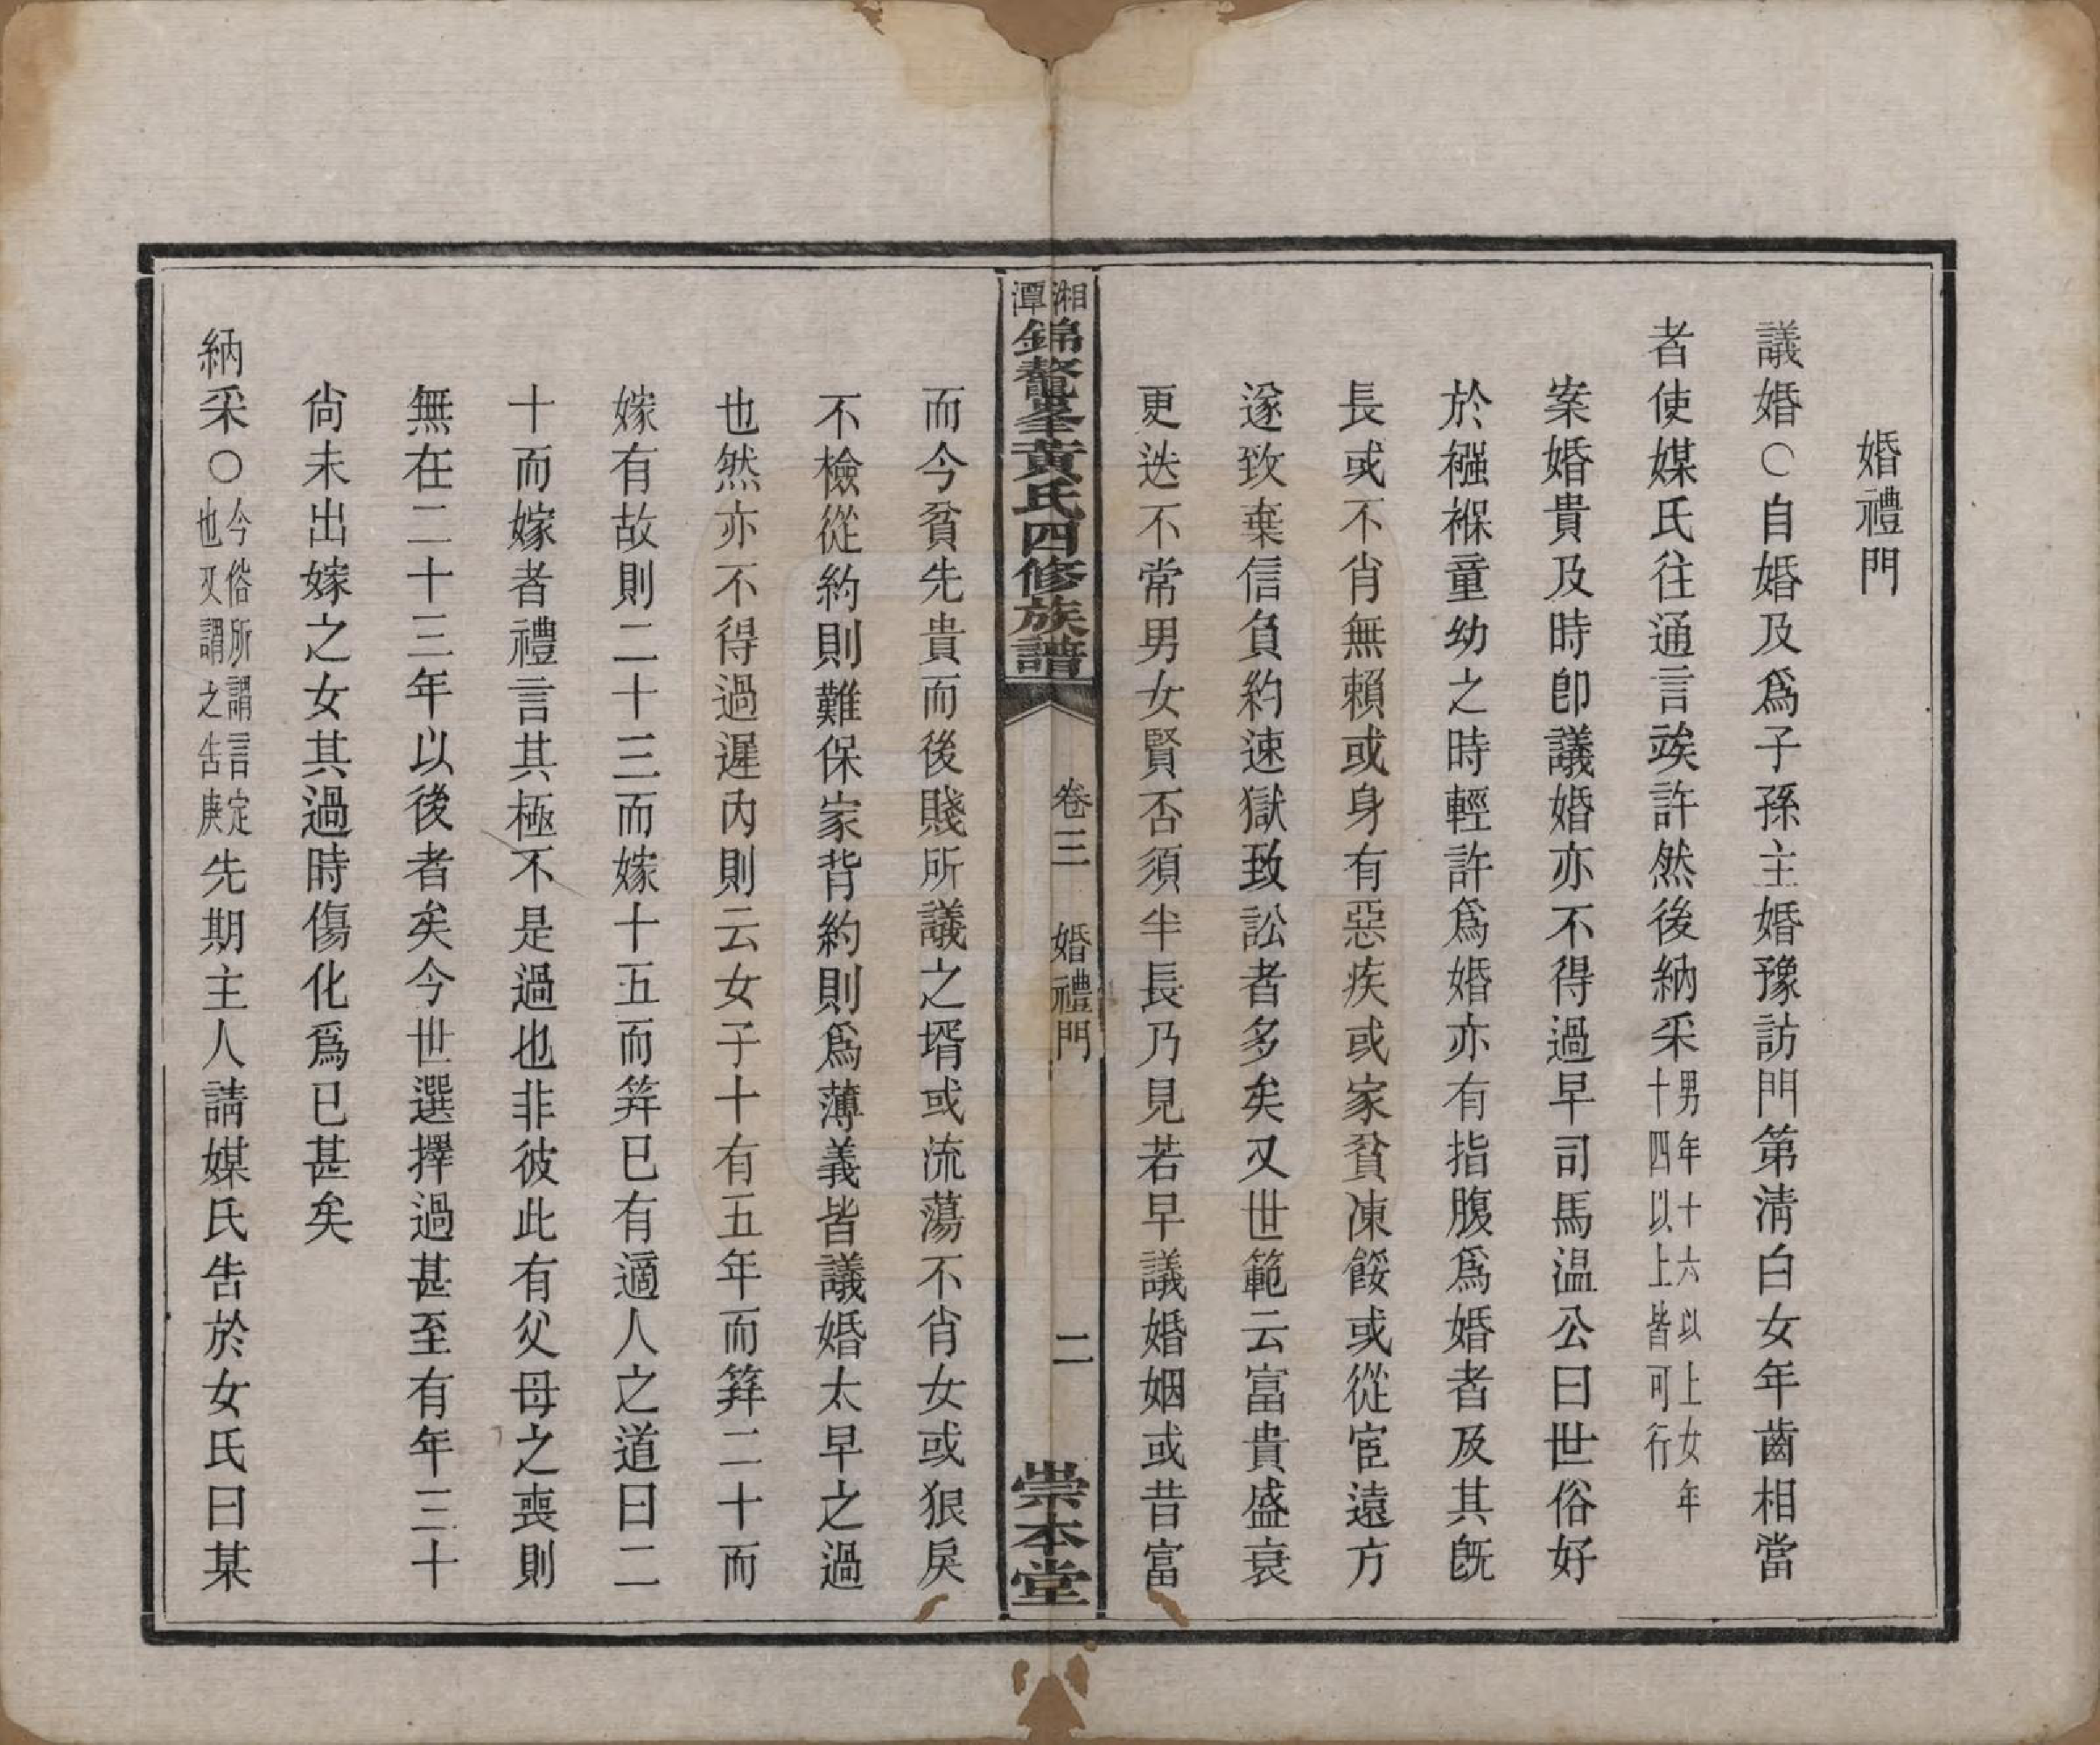 婚禮門
議婚○自婚及爲子孫主婚豫訪門第淸白女年齒相當
者使媒氏往通言竢許然後納采男年十六以上女年十四以上皆可行
案婚貴及時卽議婚亦不得過早司馬温公曰世俗好
於襁褓童幼之時輕許爲婚亦有指腹爲婚者及其旣
長或不肖無賴或身有惡疾或家貧凍餒或從宦遠方
遂致棄信負約速獄致訟者多矣又世範云富貴盛衰
更迭不常男女賢否須半長乃見若早議婚姻或昔富
湘潭錦鰲峯黃氏四修族譜 卷三 婚禮門 二 崇本堂
而今貧先貴而後賤所議之壻或流蕩不肖女或狠戾
不檢從約則難保家背約則爲薄義皆議婚太早之過
也然亦不得過遲內則云女子十有五年而筓二十而
嫁有故則二十三而嫁十五而筓已有適人之道曰二
十而嫁者禮言其極不是過也非彼此有父母之喪則
無在二十三年以後者矣今世選擇過甚至有年三十
尙未出嫁之女其過時傷化爲已甚矣
納采○今俗所謂言定也又謂之告庚先期主人請媒氏告於女氏曰某